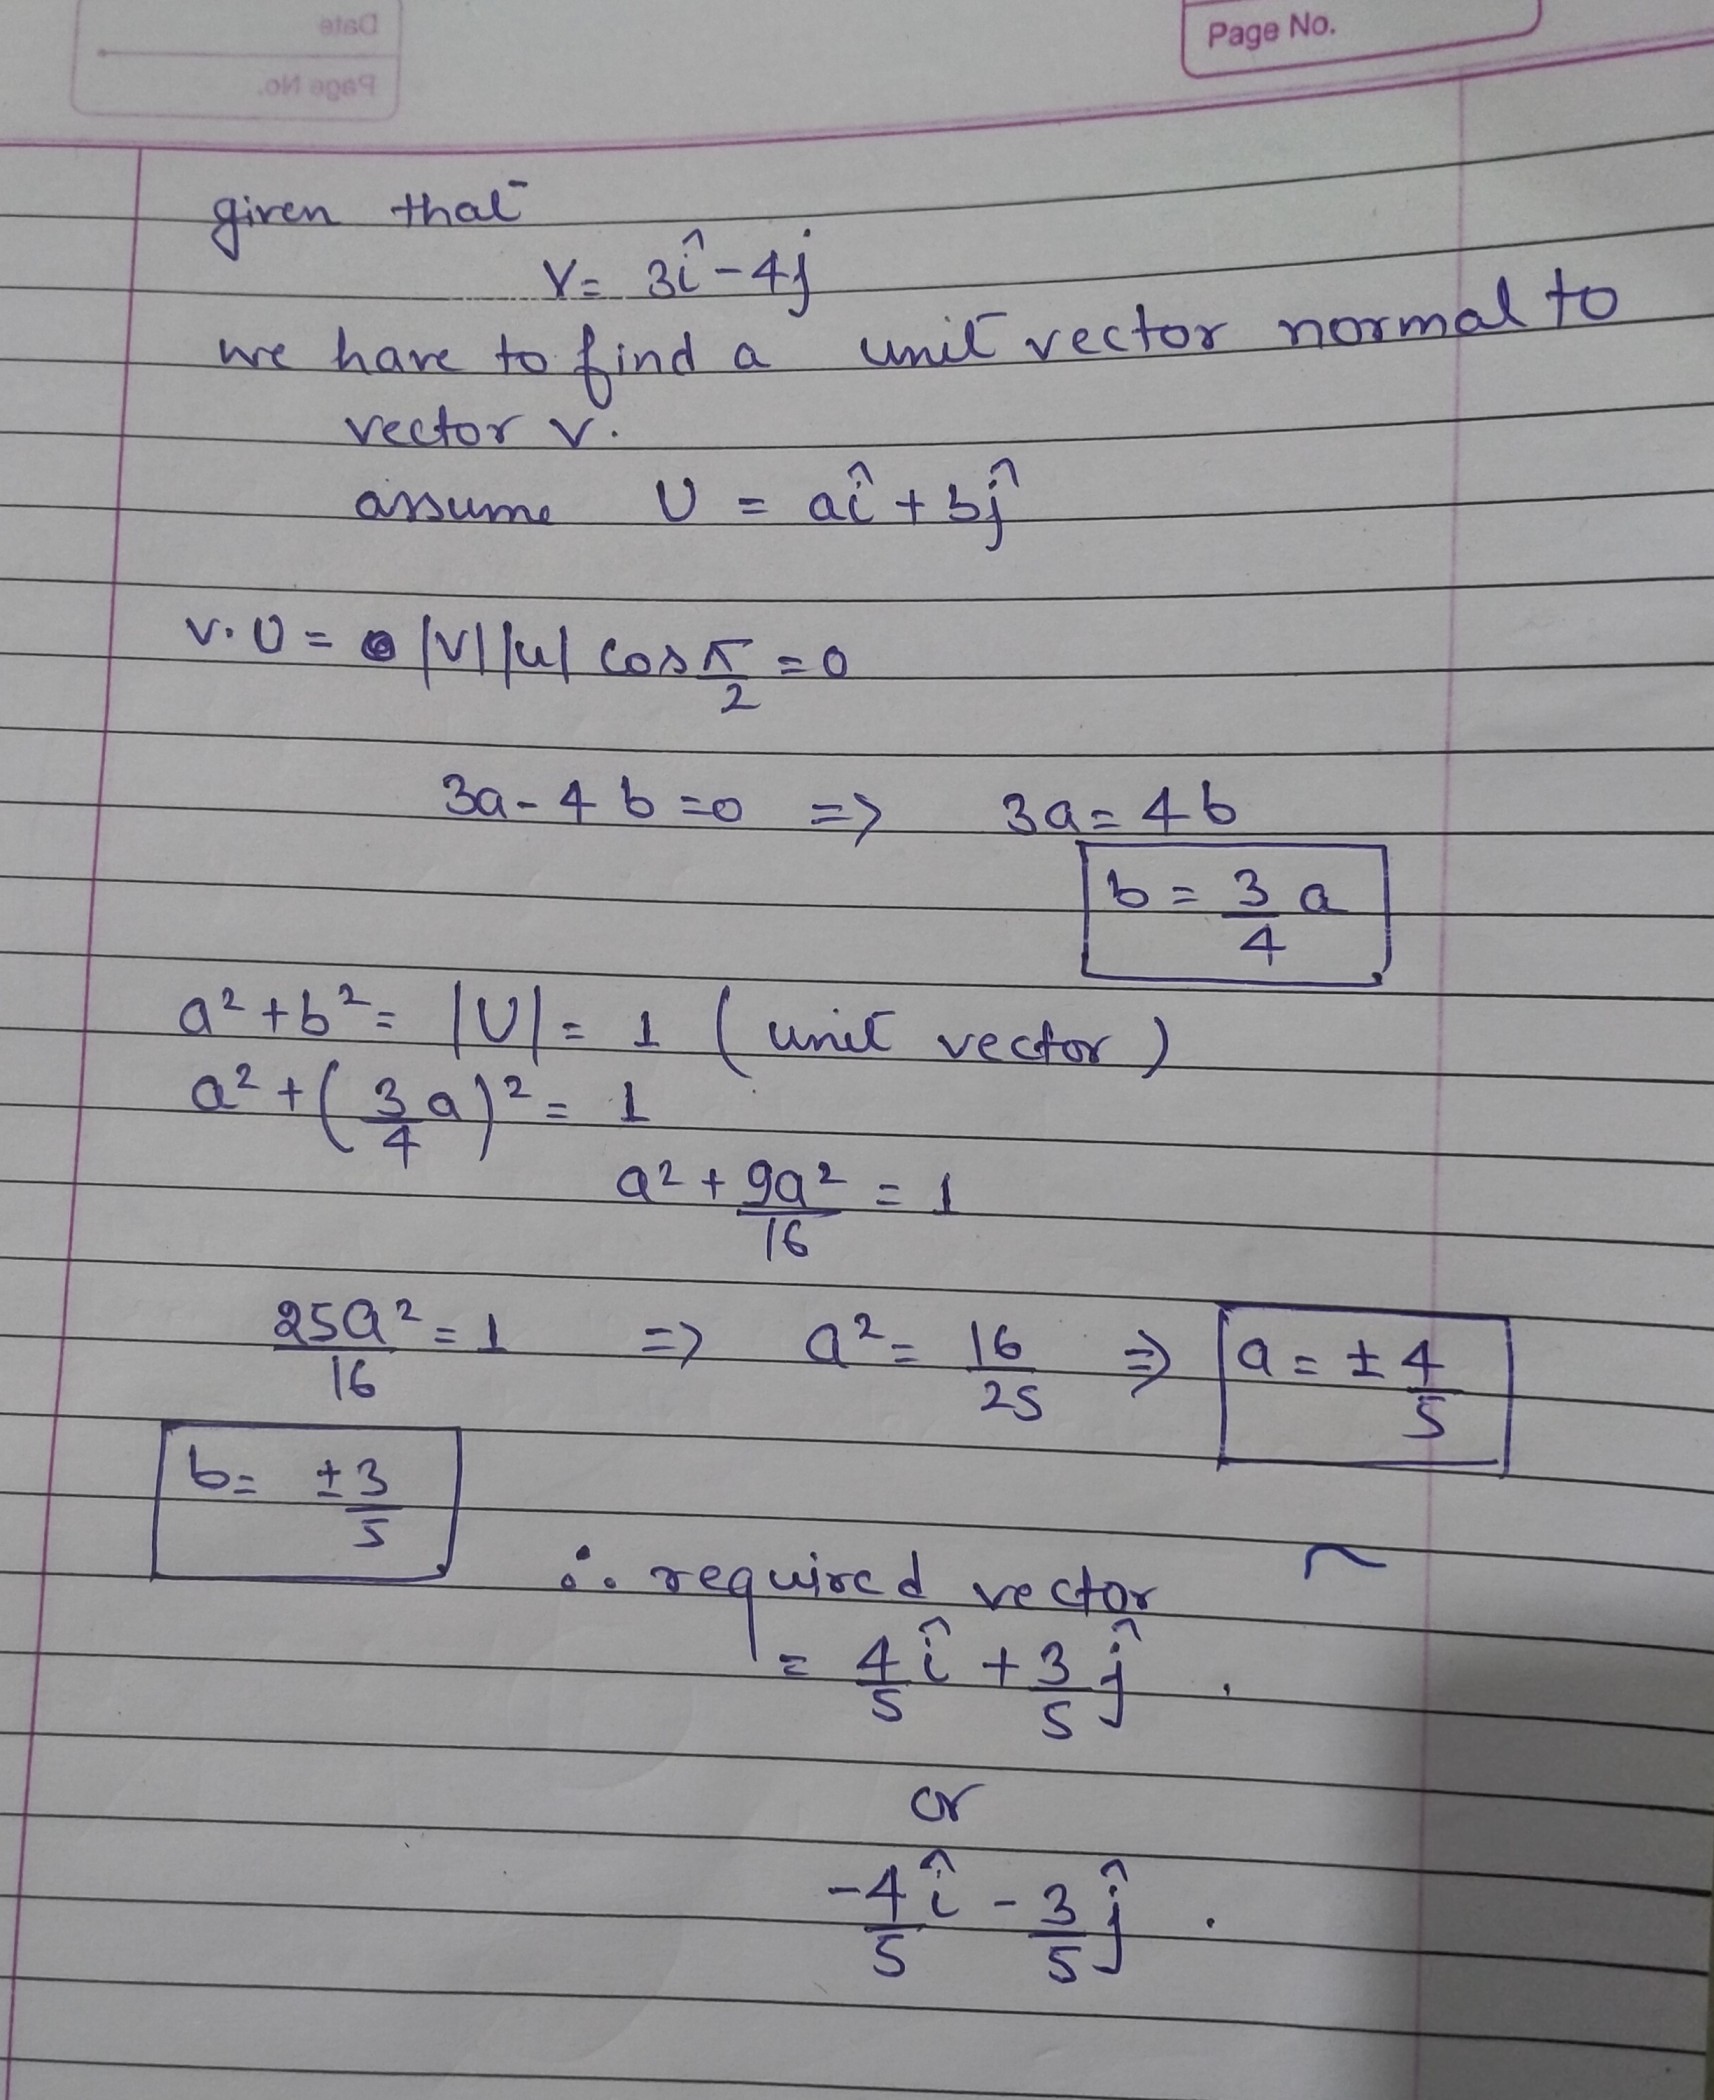 Date
Page No.
Page No.
given that
V = 3î - 4j
we have to find a unit vector normal to
vector v.
assume U = aî + bĵ
v. U = |V| |u| cos π/2 = 0
3a - 4b = 0 => 3a = 4b
b = 3/4 a
a² + b² = |U| = 1 ( unit vector )
a² + (3/4 a)² = 1
a² + 9a²/16 = 1
25a²/16 = 1 => a² = 16/25 => a = ± 4/5
b = ± 3/5
∴ required vector
= 4/5 î + 3/5 ĵ .
or
-4/5 î - 3/5 ĵ .